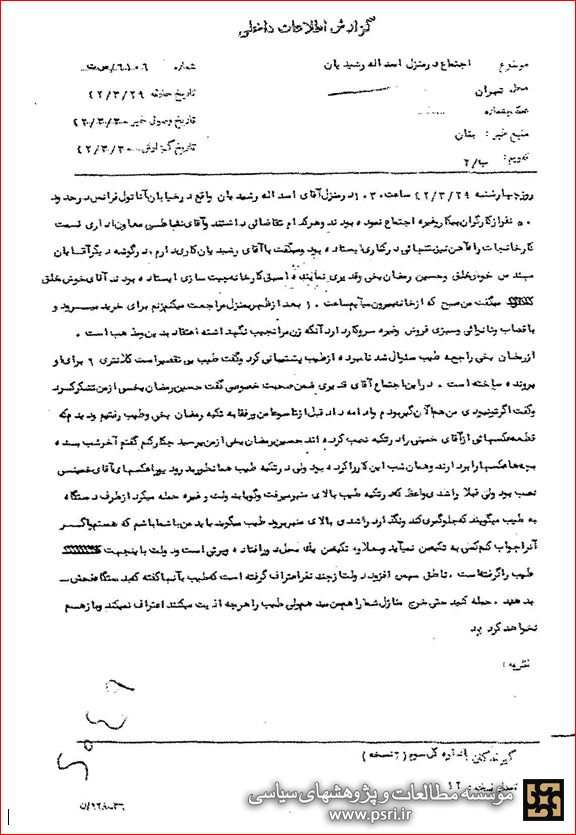 گزارش اطلاعات داخلی
موضوع اجتماع در منزل اسداله رشیدیان
شماره
محل تهران
تاریخ حادثه ۴۲/۳/۲۹
تاریخ وصول خبر ۴۲/۳/۳۰
منبع خبر :
تاریخ گزارش ۴۲/۳/۳۰
تقویم : ب/۲
روز چهارشنبه ۴۲/۳/۲۹ ساعت ۱۰۳۰ در منزل آقای اسداله رشیدیان واقع در خیابان آناتول فرانس در حدود
۵۰ نفر از کارگران بیکار و غیره اجتماع نموده بودند و هر کدام تقاضائی داشتند و آقای معاون اداری قسمت
کارخانجات راه آهن نیز در کناری ایستاده بود و میگفت با آقای رشیدیان کاری دارم ، در گوشه دیگر آقایان
مهندس خوش خلق و حسین رمضان یخی و قدیری نماینده کارخانه چیت سازی ایستاده بودند آقای خوش خلق
میگفت من صبح که از خانه بیرون میآیم ساعت ۱۰ بعد از ظهر بمنزل مراجعت میکنم زنم برای خرید میرود و با
قصاب و نانوائی و سبزی فروش وغیره سروکار دارد آنکه زن را نجیب نگهداشته اعتقاد بدین و مذهب است .
از رمضان یخی راجع به طیب سئوال شد نامبرده از طیب پشتیبانی کرد و گفت طیب بی تقصیر است کلانتری ۶ برای او
پرونده ساخته است . در این اجتماع آقای قدیری ضمن صحبت خصوصی گفت حسین رمضان یخی از من تشکر کرد
و گفت اگر تو نبودی من هم الان گیر بودم و ادامه داد قبل از تاسوعا من و رفقا به تکیه رمضان یخی و طیب رفتیم و دیدم که
قطعه عکسهائی از آقای خمینی را در تکیه نصب کرده اند حسین رمضان یخی از من پرسید چکار کنم گفتم آخر شب بده
بچه ها عکسها را بردارند و همان شب این کار را کرده بود ولی در تکیه طیب همانطور بدر و دیوار عکسهای آقای خمینی
نصب بود ولی قبلا راشدی واعظ که در تکیه طیب بالای منبر میرفت و گویا بدولت و غیره حمله میکرد از طرف دستگاه
به طیب میگویند که جلوگیری کند و نگذارد راشدی بالای منبر برود طیب میگوید باید من با شما باشم که هستم و اگر
آنرا جواب کنم کسی به تکیه من نمیآید و بعلاوه تکیه من یک محل دور افتاده و پرتی است و دولت با این جهت
طیب را گرفته است . ناطق سپس افزود دولت از چند نفر اعتراف گرفته است که طیب به آنها گفته که بدستگاه فحش
بدهید . حمله کنید حتی خرج منازل شما را هم من میدهم ولی طیب را هر چه اذیت میکنند اعتراف نمیکند و باز هم
نخواهد کرد
نظریه :
گیرندگان اداره کل سوم (۲ نسخه)
موسسه مطالعات و پژوهشهای سیاسی
www.psri.ir